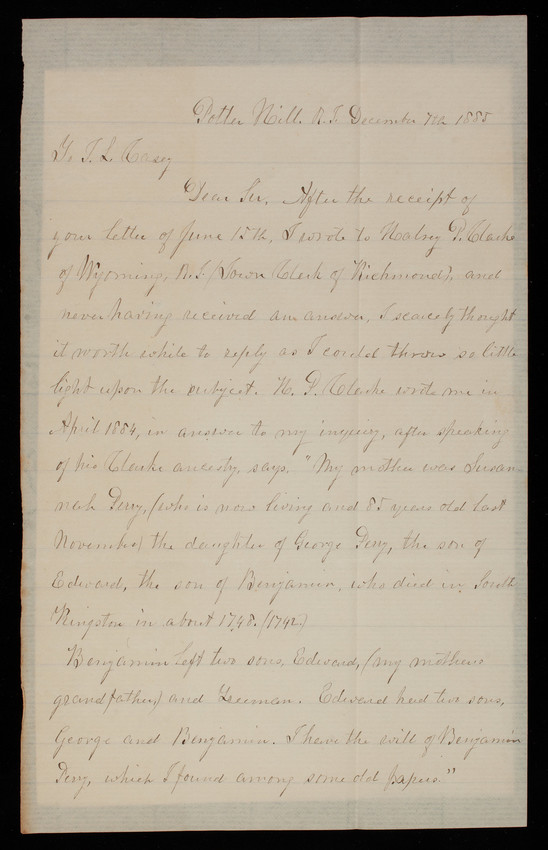 Potter Hill. R.I. December 7th 1885
To T. L. Casey
Dear Sir, After the receipt of
your letter of June 15th, I wrote to Halsey P. Clarke
of Wyoming, R.I. (Town Clerk of Richmond), and
never having received an answer, I scarcely thought
it worth while to reply as I could throw so little
light upon the subject. H. P. Clarke wrote me in
April 1884, in answer to my inquiry, after speaking
of his Clarke ancestry, says. "My mother was Susan-
nah Perry, (who is now living and 85 years old last
November) the daughter of George Perry, the son of
Edward, the son of Benjamin, who died in South
Kingston in about 1748. (1742)
Benjamin left two sons, Edward, (my mothers
grandfather,) and Freeman. Edward had two sons,
George and Benjamin. I have the will of Benjamin
Perry, which I found among some old papers."